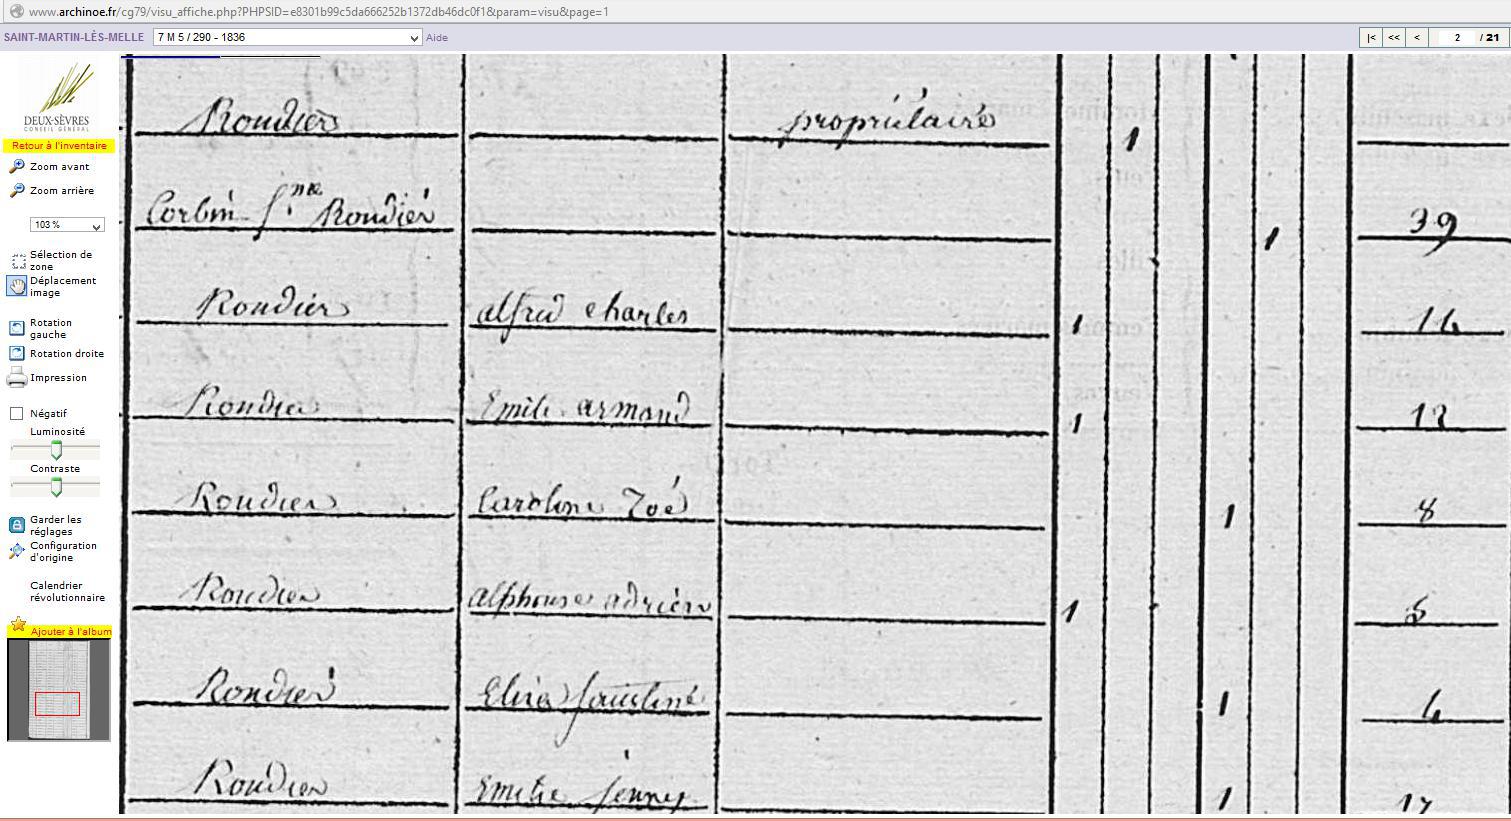 www.archinoe.fr/cg79/visu_affiche.php?PHPSID=e8301b99c5da666252b1372db46dc0f1&param=visu&page=1
SAINT-MARTIN-LÈS-MELLE 7 M 5 / 290 - 1836 Aide |< << < 2 / 21
DEUX-SÈVRES
CONSEIL GÉNÉRAL
Retour à l'inventaire
Zoom avant
Zoom arrière
103 %
Sélection de
zone
Déplacement
image
Rotation
gauche
Rotation droite
Impression
Négatif
Luminosité
Contraste
Garder les
réglages
Configuration
d'origine
Calendrier
révolutionnaire
Ajouter à l'album
Rondier propriétaire 1
Corbin fme Rondier 1 39
Rondier alfred charles 1
Rondier Emile armand 1 12
Rondier Caroline Zoé 1 8
Rondier alphonse adrien 1 5
Rondier 1
Rondier Emelie jenny 1